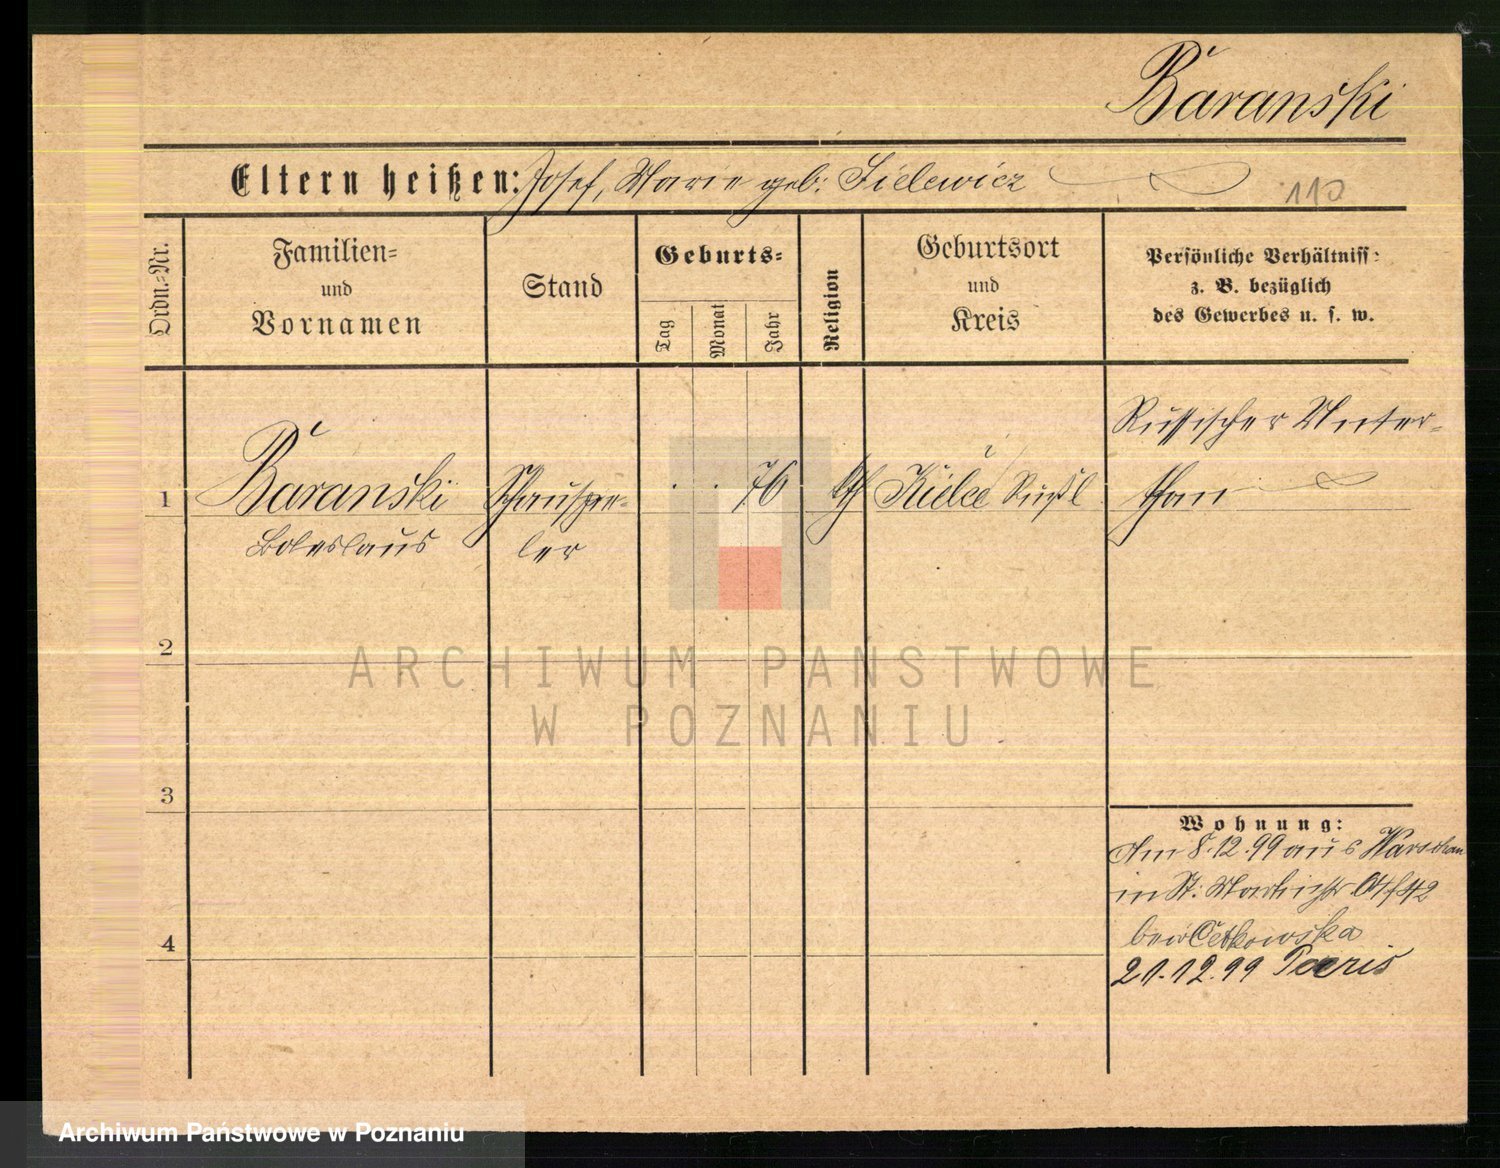 Baranski
Eltern heißen: Josef, Marie geb: Sielewicz
110
Ordn.-Nr.
Familien-
und
Vornamen
Stand
Geburts-
Tag
Monat
Jahr
Religion
Geburtsort
und
Kreis
Persönliche Verhältniss-
z. B. bezüglich
des Gewerbes u. s. w.
Russischer Unter-
1 Baranski Schauspie- 76 kth Kielce Rußl than
Boleslaus ler
2
ARCHIWUM PAŃSTWOWE
W POZNANIU
3
Wohnung:
Am 8.12.99 aus Warschau
in St. Martinstr 42
bei Cetkowska
4
21.12.99 Paris
Archiwum Państwowe w Poznaniu